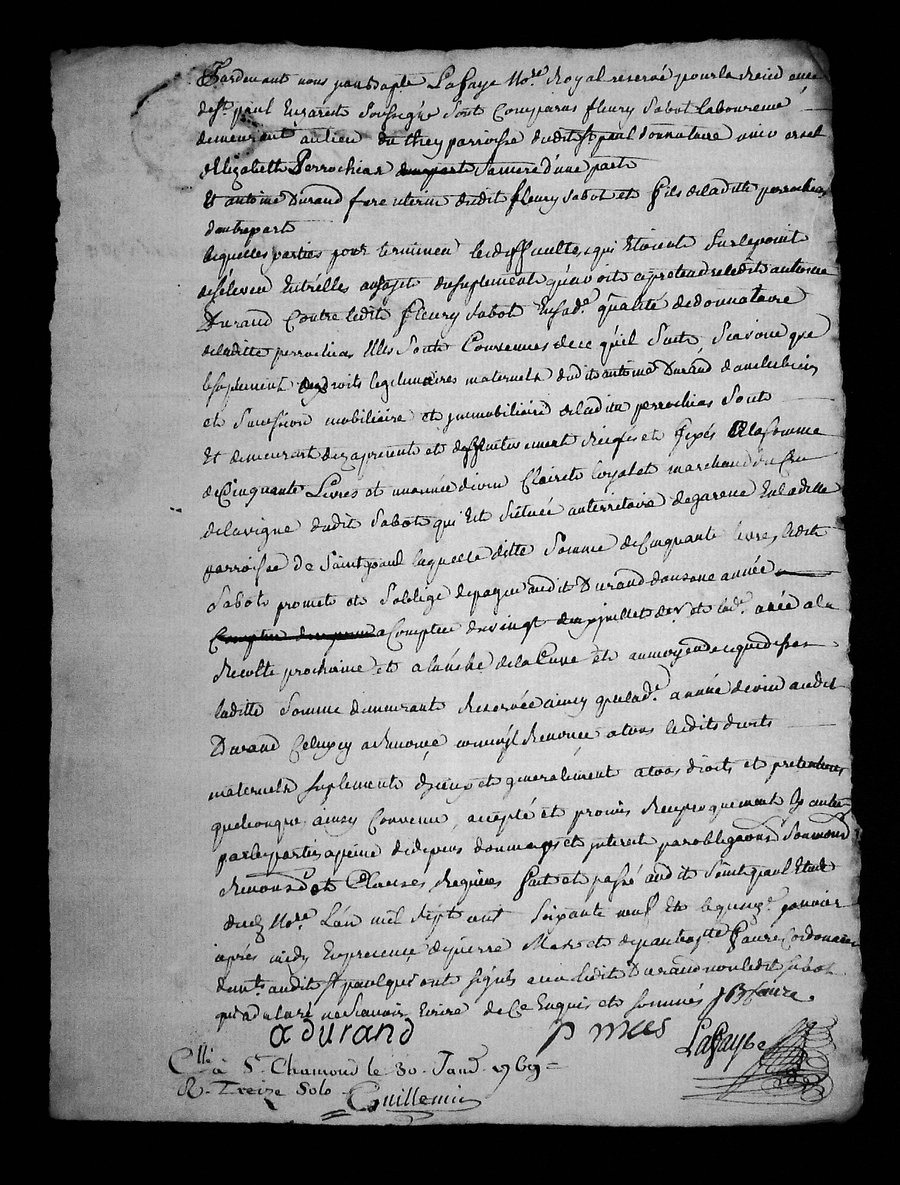 Pardevant nous jean Baptte Lafaye No.re Royal reservé pour la residance
de St. paul En jarest Soussigné Sont Comparus fleury Sabot laboureur
demeurant au lieu du they parroisse dudit St. paul donnataire universel
d'Elizabeth Perrochias Sa mere d'une part
Et antoine Durand frere uterin dudit fleury Sabot et fils de laditte perrochias
d'autre part
lesquelles parties pour terminer les difficultes qui Etoient Sur le point
de s'élever Entr'elles au sujet du suplement qu'avoit a pretendre ledit antoine
Durand Contre ledit fleury Sabot En sad.e qualité de donnataire
de laditte perrochias Elles Sont Convenues de ce qu'il Suit, Scavoir que
le suplement des droits legitimaires maternels dudit antoine Durand dans les biens
et Succession mobiliaire et immobiliaire de laditte perrochias Sont
Et demeurent dez a present et deffinitivement reglés et fixés a la somme
de Cinquante Livres et une année de vin Clairet loyal et marchand du Cru
de la vigne dudit Sabot qui Est Scituée au territoire de garenne En laditte
parroisse de Saint paul laquelle ditte Somme de Cinquante livres, ledit
Sabot promet et s'oblige de payer audit Durand dans une année
a Compter du vingt deux juillet der. et lad.e anée a la
Recolte prochaine et a l'anche de la Cuve et au moyen de ce que dessus
laditte Somme demeurant reservée ainsy que lad.e année de vin audit
Durand Celuy cy a renoncé comme il renonce a tous lesdits droits
maternels suplement d'iceux et generalement a tous droits et pretentions
quelconques ainsy Convenu, accepté et promis reciproquement Executer
par les parties a peine de depens dommages et interets par obligations Soumons
renons.d et Clauses, requises fait et passé audit Saint paul Etude
dudit No.re L'an mil Sept cent Soixante neuf Et le quinz.e janvier
après midy En presence de pierre Mees et de jean bap.tte faure Cordonnier
dem.t audit St paul qui ont signés avec ledit Durand non ledit Sabot
qui a declaré ne Scavoir Ecrire de Ce Enquis et sommés J B faure
a durand p mees Lafaye
C.llé à St. Chamond le 30. Janv. 1769 =
R. Treize Sols Guillemin